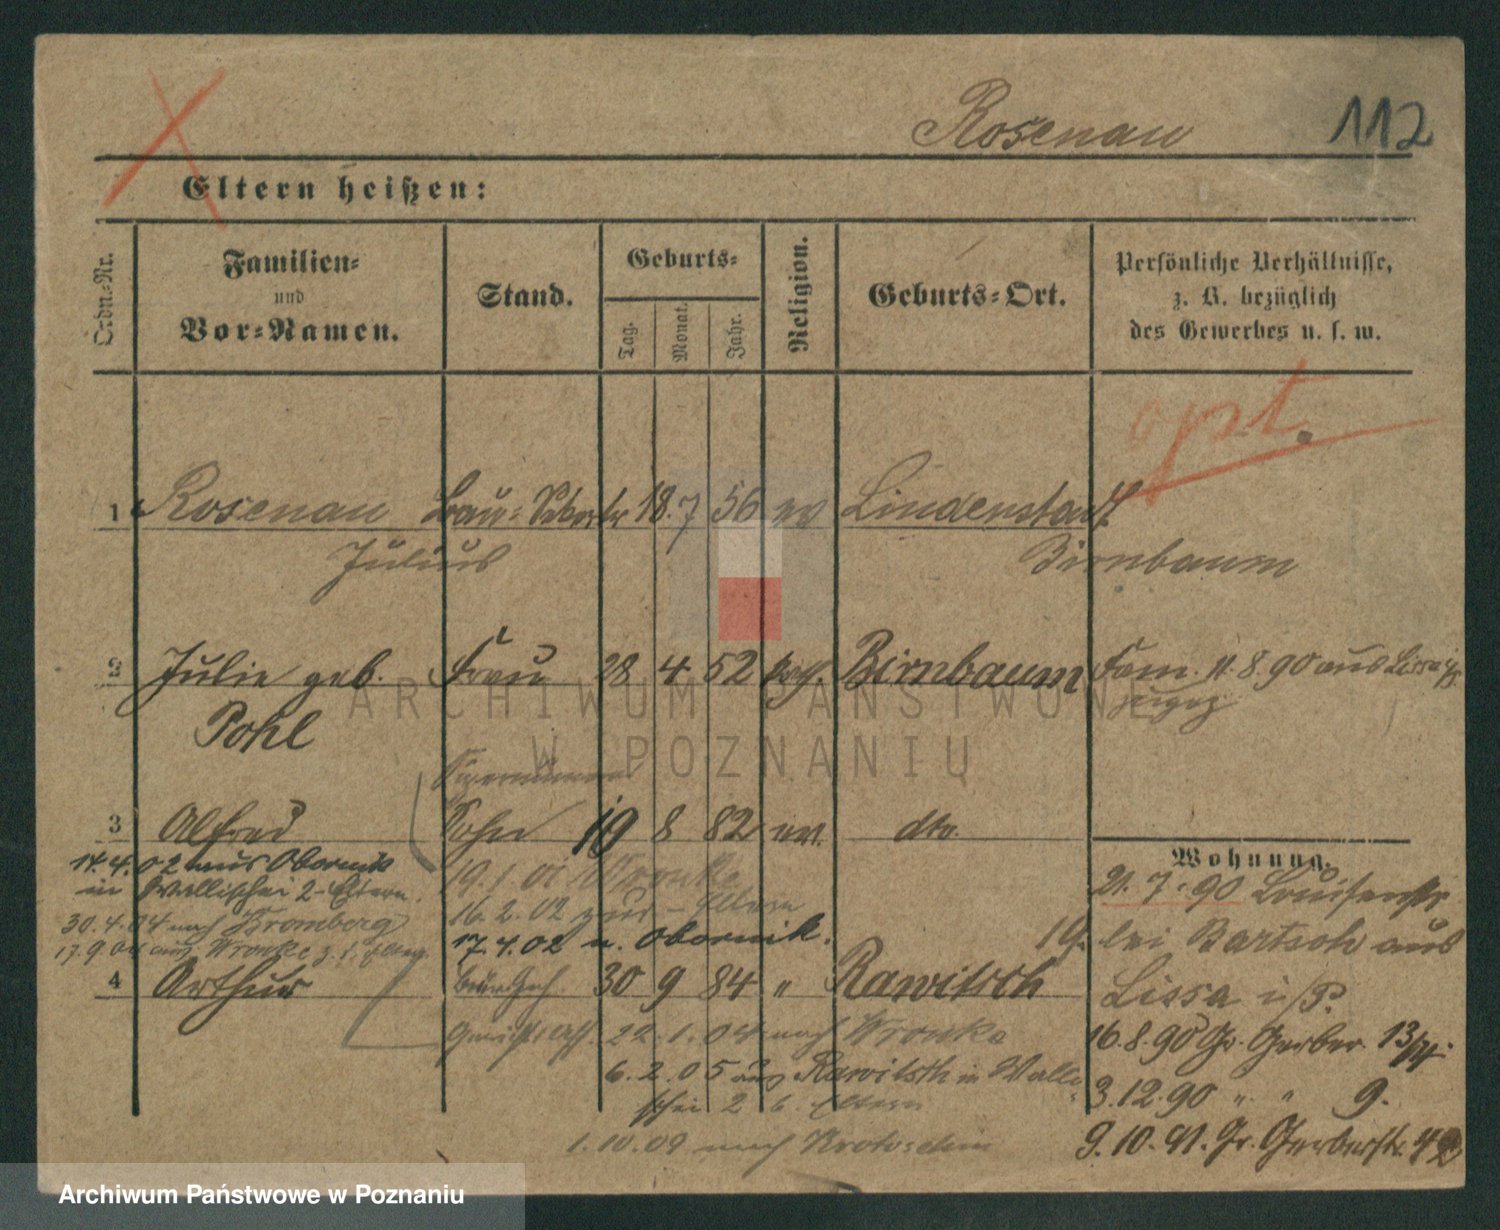 Rosenau 112
Eltern heißen:
Ordn.-Nr.
Familien-
und
Vor-Namen.
Stand.
Geburts-
Tag.
Monat.
Jahr.
Religion.
Geburts-Ort.
Persönliche Verhältnisse,
z. B. bezüglich
des Gewerbes u. s. w.
opt.
1 Rosenau Bau- 18. 7 56 ev Lindenstadt
Julius Birnbaum
2 Julie geb. Frau 28 4 52 Birnbaum Fam. 11.8.90 aus Lissa i/P
Pohl
3 Alfred Sohn 19 8 82 ev. dto.
17.4.02 aus Obornik
in Wallischei 2 Eltern.
30.4.04 nach Bromberg
17.9.04 aus Wronke z. d. Eltern
19.1.01 Wronke
16.2.02 zur - Eltern
17.4.02 n. Obornik.
4 Arthur 30 9 84 " Rawitsch
22.1.04 nach Wronke
6.2.05 aus Rawitsch in Walli-
schei 2 b. Eltern
1.10.09 nach Krotoschin
Wohnung.
21.7.90 Louisenstr
19. bei Bartsch aus
Lissa i/P.
16.8.90 Gr. Gerber. 13/14.
3.12.90 " " 9.
9.10.91. Gr. Gerberstr. 42
ARCHIWUM PAŃSTWOWE
W POZNANIU
Archiwum Państwowe w Poznaniu